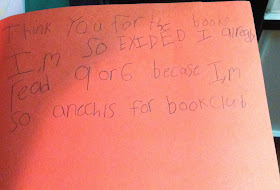 Think You for the books
I,m so EXIDED I alredy
read 9 or 6 becase I,m
so anechis for bookclub